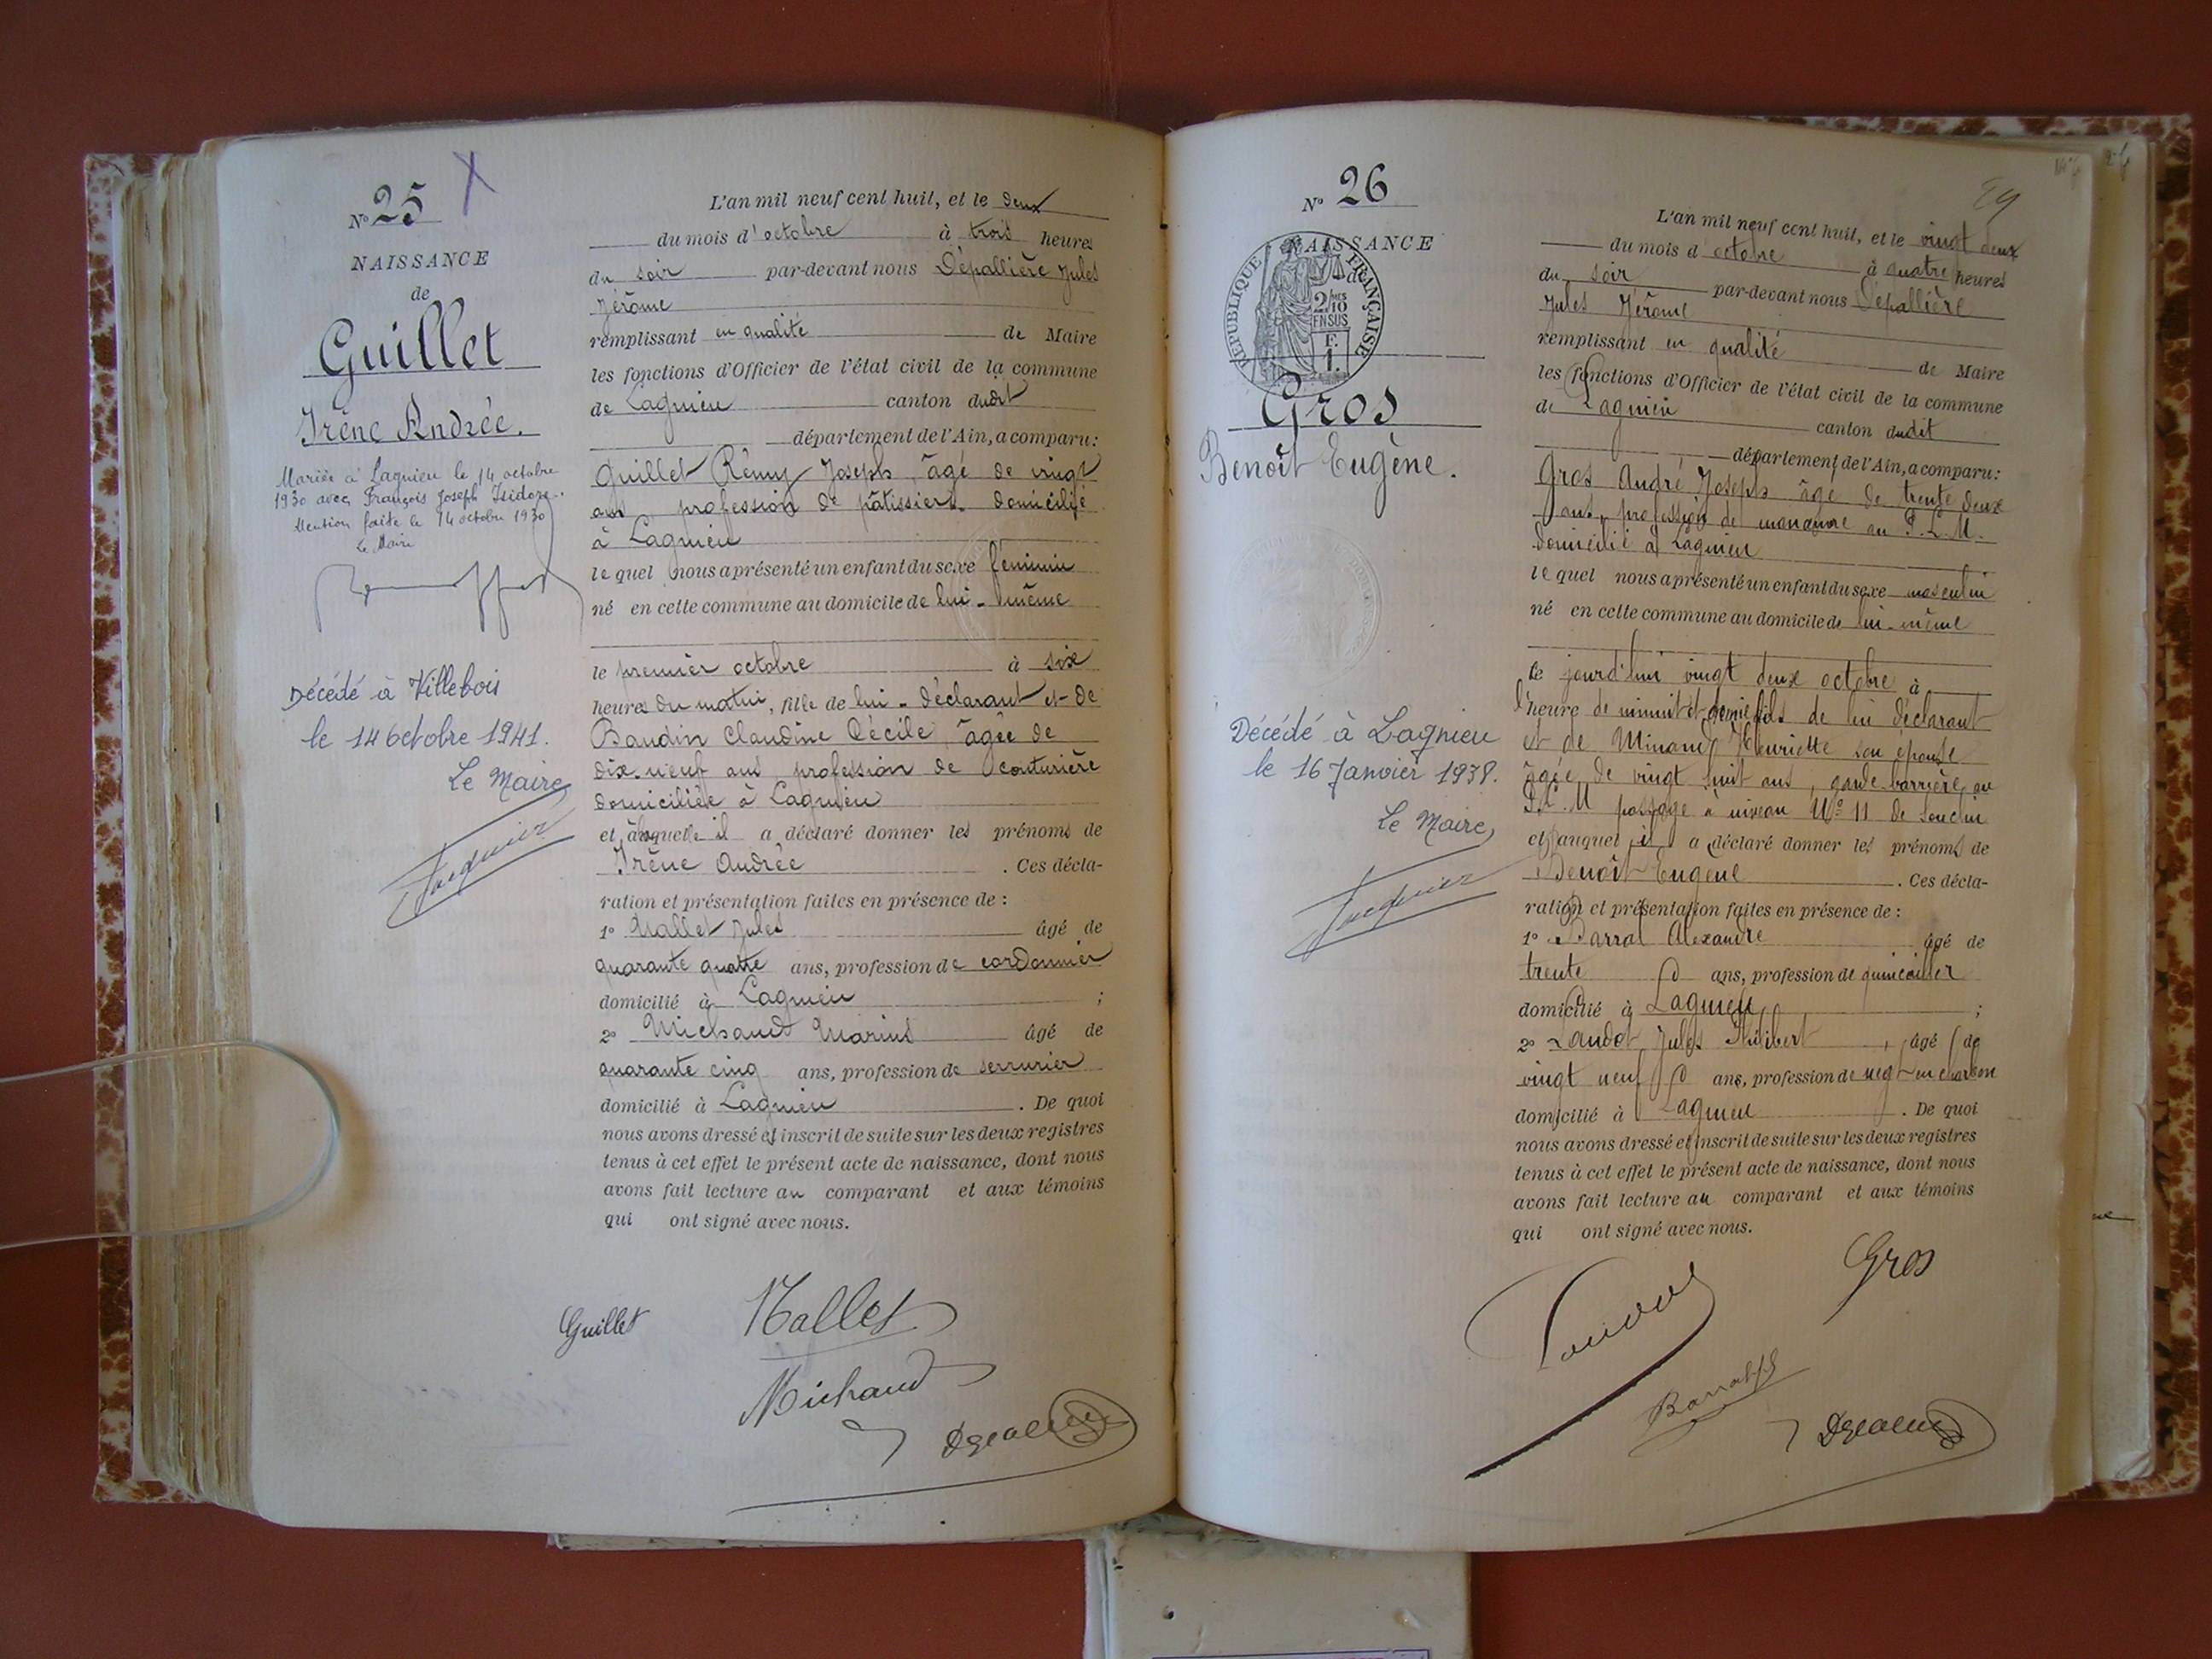 N° 25 X
NAISSANCE
de
Guillet
Irène Andrée.
Mariée à Lagnieu le 14 octobre
1930 avec François Joseph Isidore.
Mention faite le 14 octobre 1930
Le Maire
Décédé à Villebois
le 14 Octobre 1941.
Le Maire,
Jacquier
L'an mil neuf cent huit, et le deux
du mois d'octobre à trois heures
du soir par-devant nous Dépallière Jules
Jérome
remplissant en qualité de Maire
les fonctions d'Officier de l'état civil de la commune
de Lagnieu canton dudit
département de l'Ain, a comparu:
Guillet Rémy Joseph, âgé de vingt
ans profession de pâtissier domicilié
à Lagnieu
le quel nous a présenté un enfant du sexe féminin
né en cette commune au domicile de lui-même
le premier octobre à six
heures du matin, fille de lui-déclarant et de
Baudin Claudine Cécile, âgée de
dix-neuf ans profession de couturière
domiciliée à Lagnieu
et à laquelle il a déclaré donner les prénoms de
Irène Andrée. Ces décla-
ration et présentation faites en présence de :
1° Mallet Jules âgé de
quarante quatre ans, profession de cordonnier
domicilié à Lagnieu ;
2° Michaud Marius âgé de
quarante cinq ans, profession de serrurier
domicilié à Lagnieu. De quoi
nous avons dressé et inscrit de suite sur les deux registres
tenus à cet effet le présent acte de naissance, dont nous
avons fait lecture au comparant et aux témoins
qui ont signé avec nous.
Guillet Mallet
Michaud
N° 26
NAISSANCE
de
RÉPUBLIQUE FRANÇAISE
2/10
EN SUS
F.
1.
Gros
Benoît Eugène.
Décédé à Lagnieu
le 16 Janvier 1938.
Le Maire,
Jacquier
29
L'an mil neuf cent huit, et le vingt deux
du mois d octobre à quatre heures
du soir par-devant nous Dépallière
Jules Jérome
remplissant en qualité de Maire
les fonctions d'Officier de l'état civil de la commune
de Lagnieu canton dudit
département de l'Ain, a comparu:
Gros André Joseph âgé de trente deux
ans, profession de manœuvre au P.L.M.
domicilié à Lagnieu
le quel nous a présenté un enfant du sexe masculin
né en cette commune au domicile de lui-même
le jourd'hui vingt deux octobre à
l'heure de minuit et demie fils de lui déclarant
et de Minand Henriette son épouse
âgée de vingt huit ans, garde-barrière au
P.L.M passage à niveau N° 11 de Souclin
et auquel il a déclaré donner les prénoms de
Benoît Eugène. Ces décla-
ration et présentation faites en présence de :
1° Barral Alexandre âgé de
trente ans, profession de quincailler
domicilié à Lagnieu ;
2° Laudet Jules Philibert, âgé de
vingt neuf ans, profession de négt en charbon
domicilié à Lagnieu. De quoi
nous avons dressé et inscrit de suite sur les deux registres
tenus à cet effet le présent acte de naissance, dont nous
avons fait lecture au comparant et aux témoins
qui ont signé avec nous.
Gros